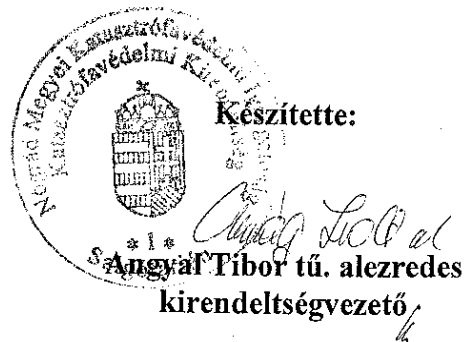 Nógrád Megyei Katasztrófavédelmi
Katasztrófavédelmi Kirendeltség
* 1 *
Készítette:
Angyal Tibor tű. alezredes
kirendeltségvezető